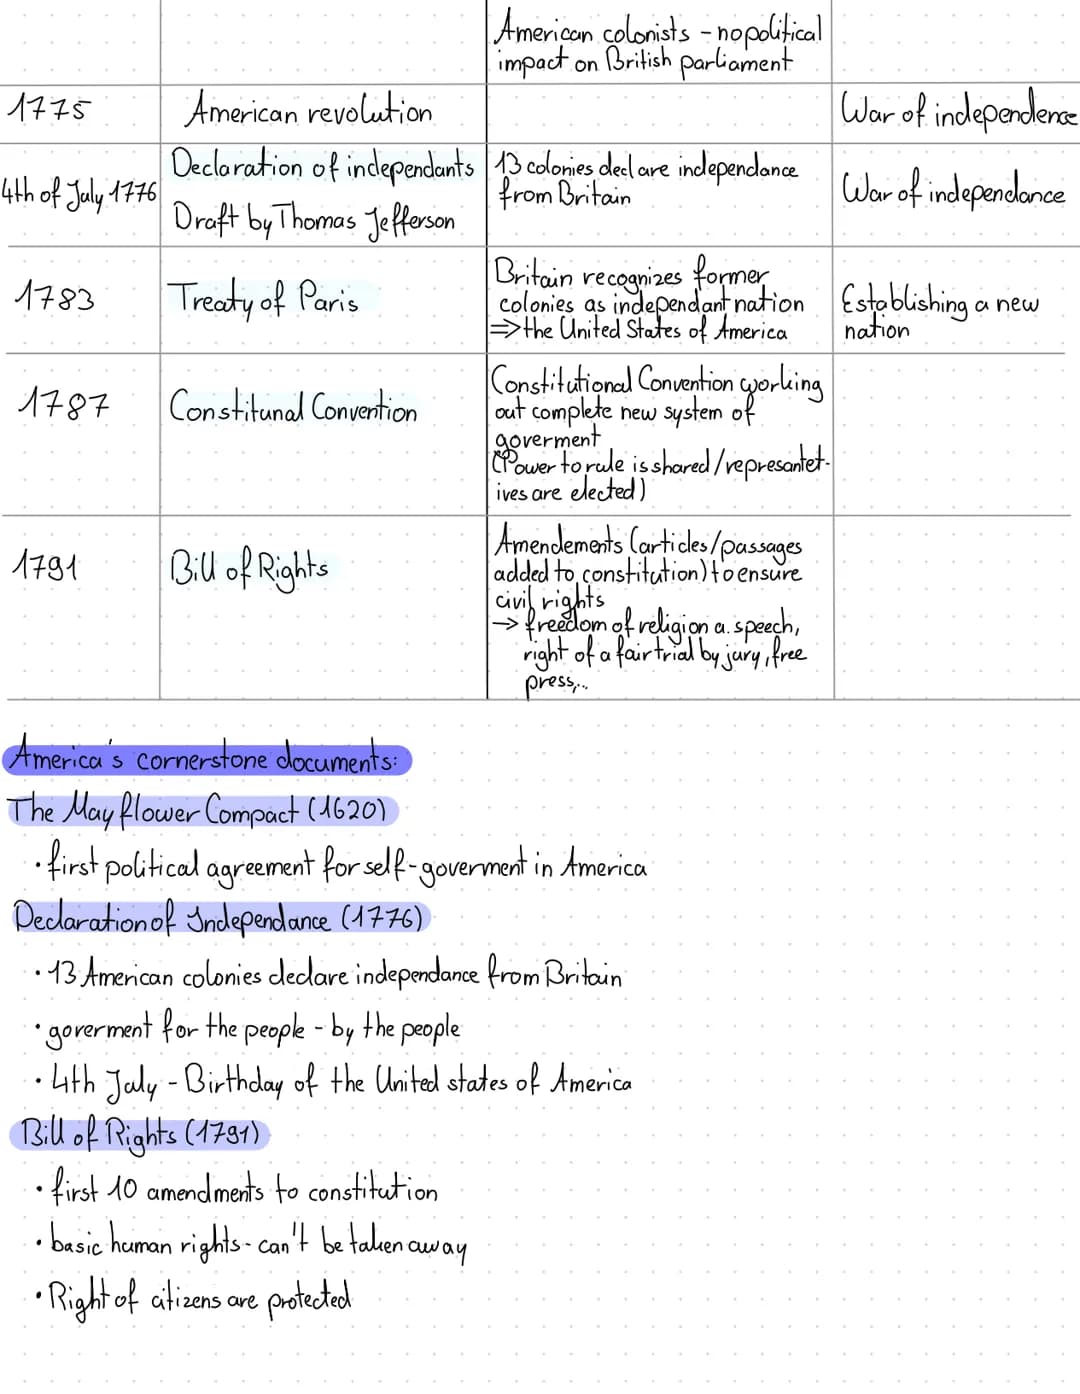 American colonists - no political
impact on British parliament
1775 American revolution War of independence
4th of July 1776
Declaration of independants
Draft by Thomas Jefferson
13 colonies declare independance
from Britain
War of independance
1783 Treaty of Paris
Britain recognizes former
colonies as independant nation
=> the United States of America
Establishing a new
nation
1787 Constitunal Convention
Constitutional Convention working
out complete new system of
goverment
(Power to rule is shared/represantet-
ives are elected)
1791 Bill of Rights
Amendements (articles/passages
added to constitution) to ensure
civil rights
→ freedom of religion a. speech,
right of a fair trial by jury, free
press,..
America's cornerstone documents:
The Mayflower Compact (1620)
• first political agreement for self-goverment in America
Declaration of Independance (1776)
• 13 American colonies declare independance from Britain
• goverment for the people - by the people
• 4th July - Birthday of the United states of America
Bill of Rights (1791)
• first 10 amendments to constitution
• basic human rights - can't be taken away
• Right of citizens are protected